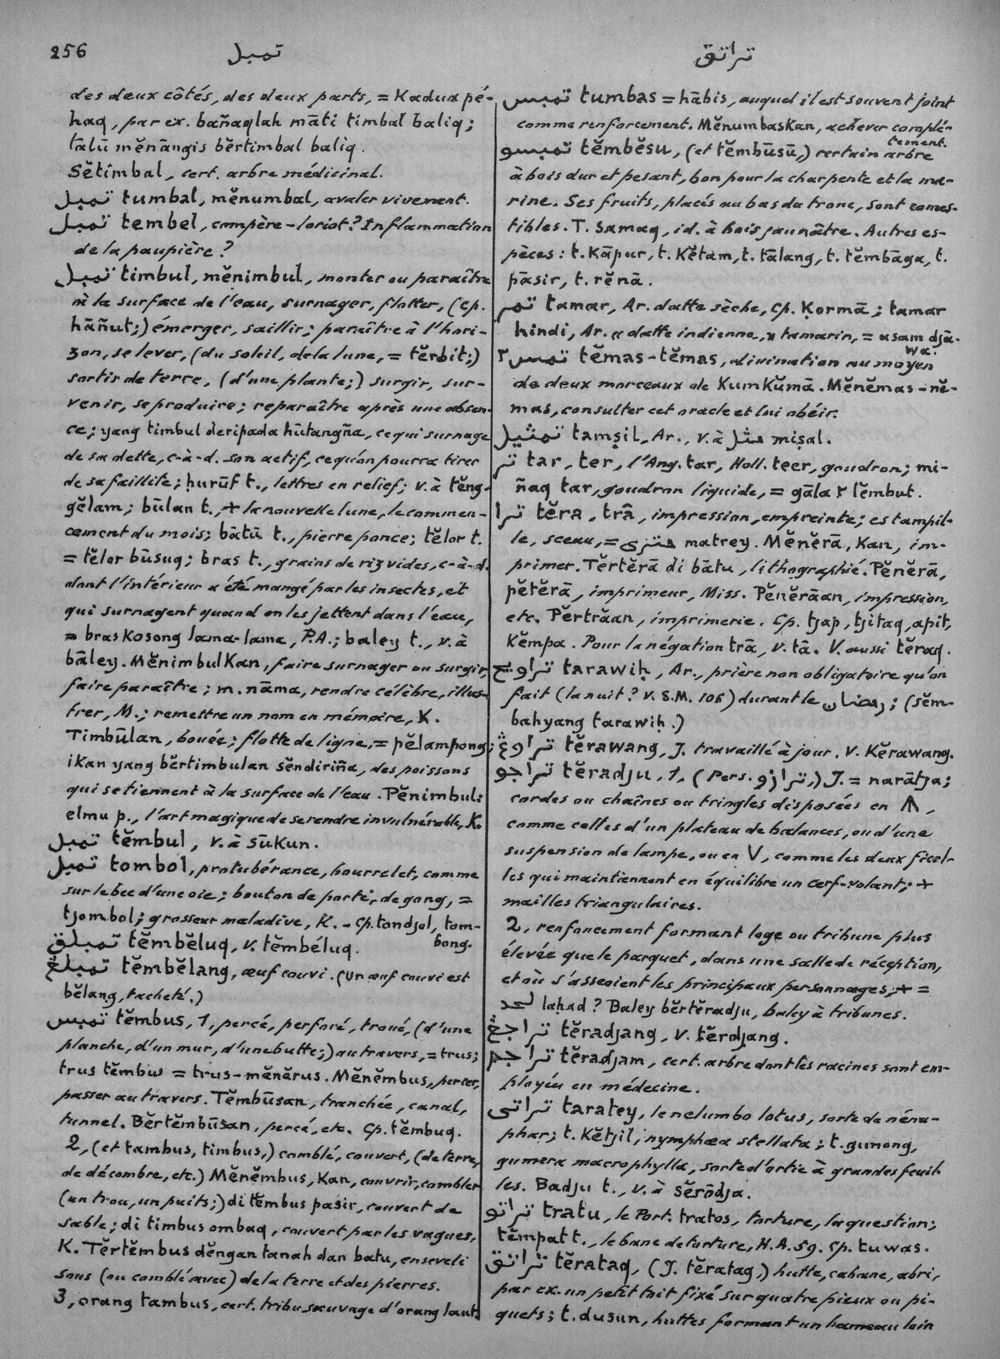 256
تمبل
تراتق
des deux côtés, des deux parts, = Kadua pé-
haq, par ex. bañaqlah māti timbal baliq;
lālū mĕnāngis bĕrtimbal baliq.
Sĕtimbal, cert. arbre médicinal.
تمبل tumbal, mĕnumbal, avaler vivement.
تمبل tembel, compère-loriot? Inflammation
de la paupière?
تمبل timbul, mĕnimbul, monter ou paraître
à la surface de l'eau, surnager, flotter, (cp.
hāñut;) émerger, saillir; paraître à l'hori-
zon, se lever, (du soleil, de la lune, = tĕrbit;)
sortir de terre, (d'une plante;) surgir, sur-
venir, se produire; reparaître après une absen-
ce; yang timbul deripada hūtangña, ce qui surnage
de sa dette, c-à-d. son actif, ce qu'on pourra tirer
de sa faillite; ḥurūf t., lettres en relief; v. à tĕng-
gĕlam; būlan t., + la nouvelle lune, le commen-
cement du mois; bātū t., pierre ponce; tĕlor t.
= tĕlor būsuq; bras t., grains de riz vides, c-à-d.
dont l'intérieur a été mangé par les insectes, et
qui surnagent quand on les jettent dans l'eau,
= bras Kosong lama-lame, P.A.; baley t., v. à
bāley. MĕnimbulKan, faire surnager ou surgir,
faire paraître; m. nāma, rendre célèbre, illus-
trer, M.; remettre un nom en mémoire, K.
Timbūlan, bouée; flotte de ligne, = pĕlampong;
iKan yang bĕrtimbulan sĕndiriña, des poissons
qui se tiennent à la surface de l'eau. Pĕnimbul:
elmu p., l'art magique de se rendre invulnérable, K.
تمبل tĕmbul, v. à sūKun.
تمبل tombol, protubérance, bourrelet, comme
sur le bec d'une oie; bouton de porte, de gong, =
tjombol; grosseur maladive, K. - Cp. tandjol, tom-
bong.
تمبلق tĕmbĕluq, v. tĕmbéluq.
تمبلڠ tĕmbĕlang, œuf couvi. (Un œuf couvi est
bĕlang, tacheté.)
تمبس tĕmbus, 1, percé, perforé, troué, (d'une
planche, d'un mur, d'une butte;) au travers, = trus;
trus tĕmbus = trus-mĕnĕrus. Mĕnĕmbus, percer,
passer au travers. Tĕmbūsan, tranchée, canal,
tunnel. Bĕrtĕmbūsan, percé, etc. Cp. tĕmbuq.
2, (et tambus, timbus,) comblé, couvert, (de terre,
de décombre, etc.) Mĕnĕmbus, Kan, couvrir, combler
(un trou, un puits;) di tĕmbus pasir, couvert de
sable; di timbus ombaq, couvert par les vagues,
K. Tĕrtĕmbus dĕngan tanah dan batu, enseveli
sous (ou comblé avec) de la terre et des pierres.
3, orang tambus, cert. tribu sauvage d'orang laut.
تمبس tumbas = hābis, auquel il est souvent joint
comme renforcement. MĕnumbasKan, achever complé-
tement.
تمبسو tĕmbĕsu, (et tĕmbūsū,) certain arbre
à bois dur et pesant, bon pour la charpente et la ma-
rine. Ses fruits, placés au bas du tronc, sont comes-
tibles. T. samaq, id. à bois jaunâtre. Autres es-
pèces: t. Kāpur, t. Kĕtam, t. tālang, t. tĕmbāga, t.
pāsir, t. rĕnā.
تمر tamar, Ar. datte sèche, Cp. Kormā; tamar
hindi, Ar. « datte indienne, » tamarin, = asam djā-
wa.
تمس٢ tĕmas-tĕmas, divination au moyen
de deux morceaux de KumKŭmā. Mĕnĕmas-nĕ-
mas, consulter cet oracle et lui obéir.
تمثيل tamṣil, Ar., v. à مثل miṣal.
تر tar, ter, l'Ang. tar, Holl. teer, goudron; mi-
ñaq tar, goudron liquide, = gāla٢ lĕmbut.
ترا tĕra, trâ, impression, empreinte; estampil-
le, sceau, = متري matrey. Mĕnĕrā, Kan, im-
primer. Tĕrtĕrā di bātu, lithographié. Pĕnĕrā,
pĕtĕrā, imprimeur, Miss. Pĕnĕrāan, impression,
etc. Pĕrtrāan, imprimerie. Cp. tjap, tjitaq, apit,
Kĕmpa. Pour la négation trā, v. tā. V. aussi tĕraq.
تراويح tarawiḥ, Ar., prière non obligatoire qu'on
fait (la nuit? V. S.M. 106) durant le رمضان; (sĕm-
bahyang tarawiḥ.)
تراوڠ tĕrawang, J. travaillé à jour. V. Kĕrawang.
تراجو tĕradju, 1, (Pers. ترازو,) J. = narātja;
cordes ou chaînes ou tringles disposées en Λ,
comme celles d'un plateau de balances, ou d'une
suspension de lampe, ou en V, comme les deux ficel-
les qui maintiennent en équilibre un cerf-volant; +
mailles triangulaires.
2, renfoncement formant loge ou tribune plus
élevée que le parquet, dans une salle de réception,
et où s'asseoient les principaux personnages; + =
لحد laḥad? Baley bĕrtĕradju, baley à tribunes.
تراجڠ tĕradjang, v. tĕrdjang.
تراجم tĕradjam, cert. arbre dont les racines sont em-
ployées en médecine.
تراتي taratey, le nelumbo lotus, sorte de nénu-
phar; t. Kĕtjil, nymphæa stellata; t. gunong,
gunera macrophylla, sorte d'ortie à grandes feuil-
les. Badju t., v. à sĕrōdja.
تراتو tratu, le Port. tratos, torture, la question;
tĕmpat t., le banc de torture, H.A.Sg. Cp. tuwas.
تراتق tĕrataq, (J. tĕratag,) hutte, cabane, abri,
par ex. un petit toit fixé sur quatre pieux ou pi-
quets; t. dusun, huttes formant un hameau loin